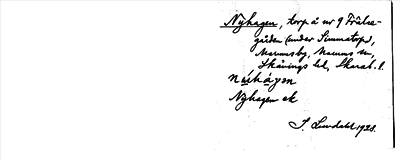 Nyhagen, torp å nr 9 Frälse-
gården (under Simmatorp),
Marumsby, Marums sn,
Skånings hd, Skarab. l.
nùhágen
Nyhagen ek
J. Lindahl 1928.